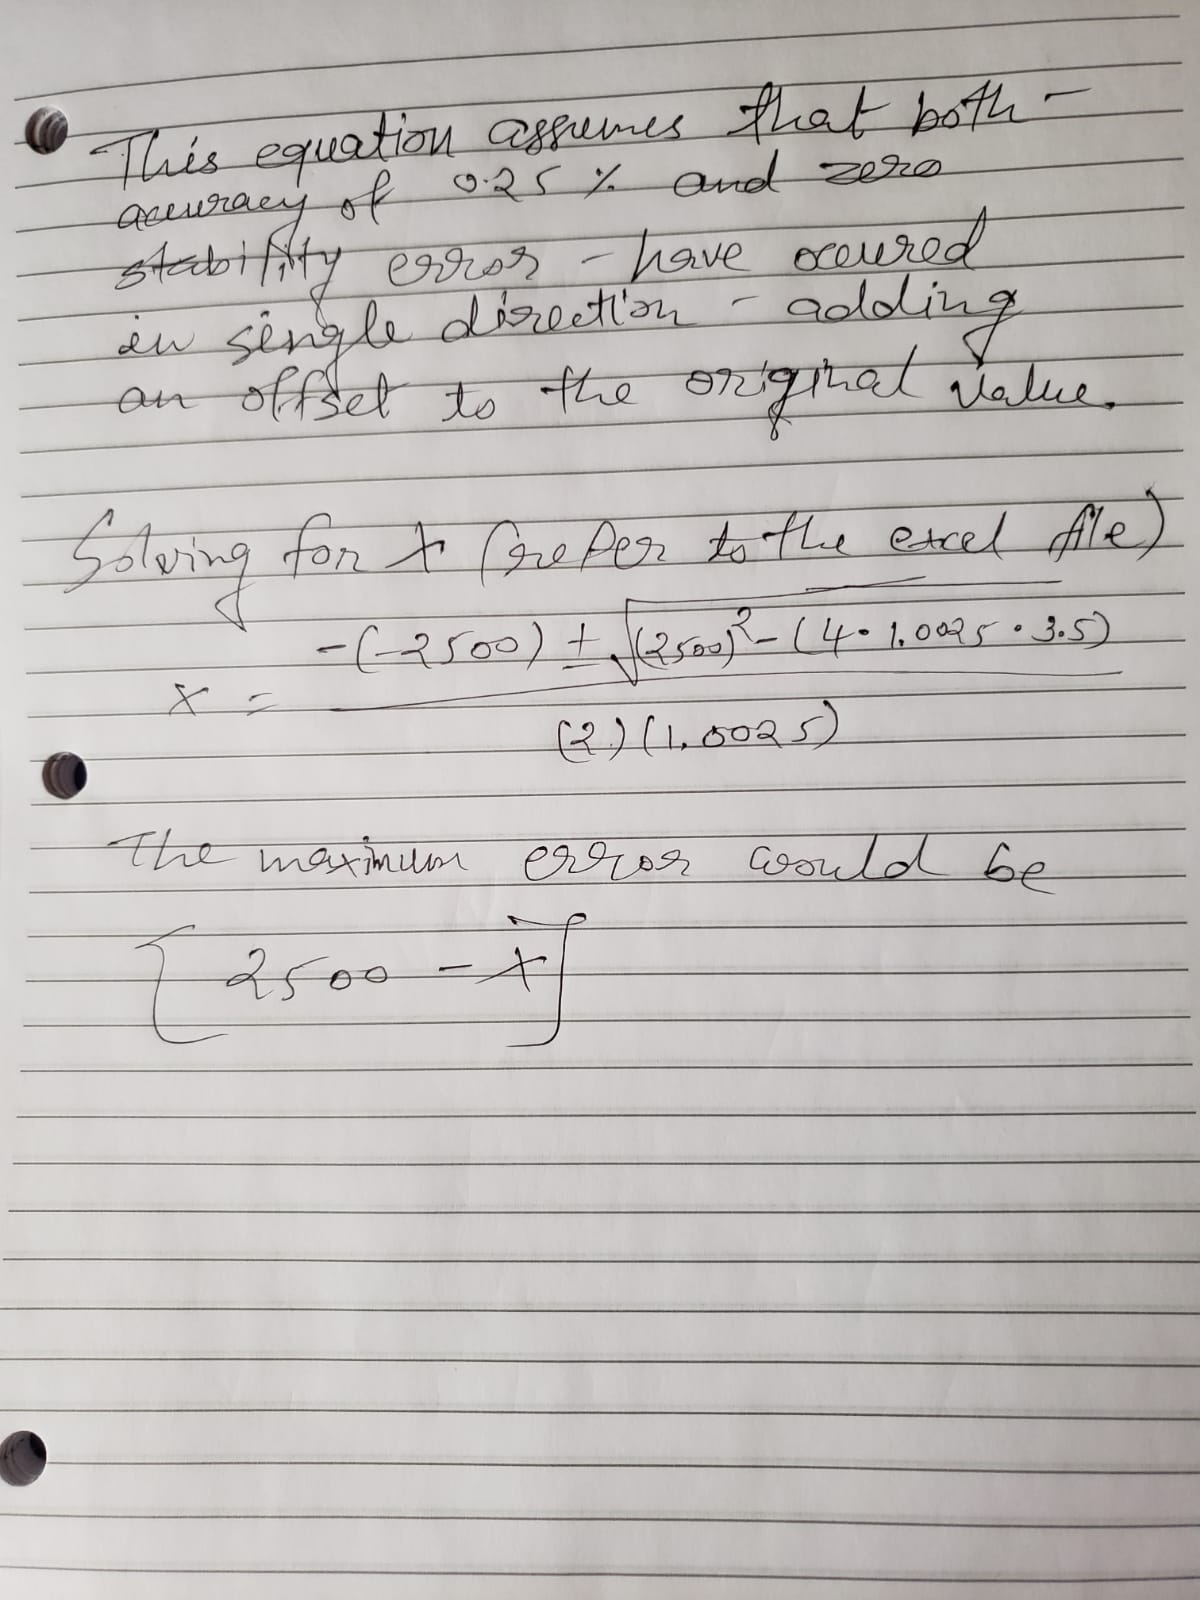 This equation assumes that both -
accuracy of 0.25 % and zero
stability error - have occured
in single direction - adding
an offset to the original value.
Solving for x (refer to the excel file)
x = -(-2500) ± √(2500)² - (4 · 1.0025 · 3.5)
(2) (1.0025)
The maximum error would be
[2500 - x]